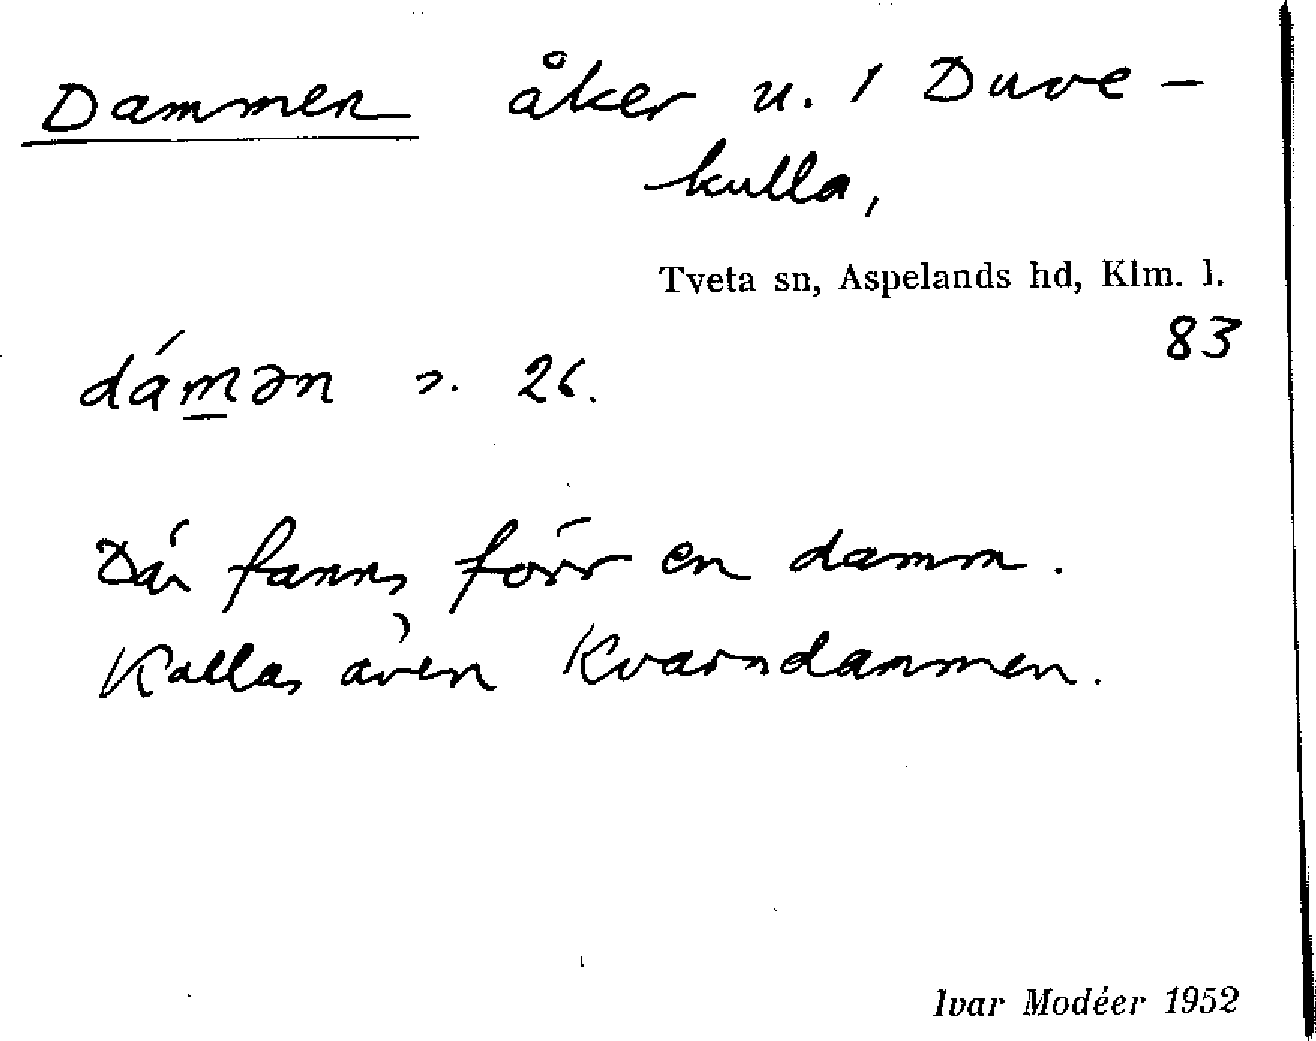 Dammen åker u. 1 Duve-
kulla,
Tveta sn, Aspelands hd, Klm. l.
83
dámən 26.
Där fanns förr en damm.
Kallas även Kvarndammen.
Ivar Modéer 1952